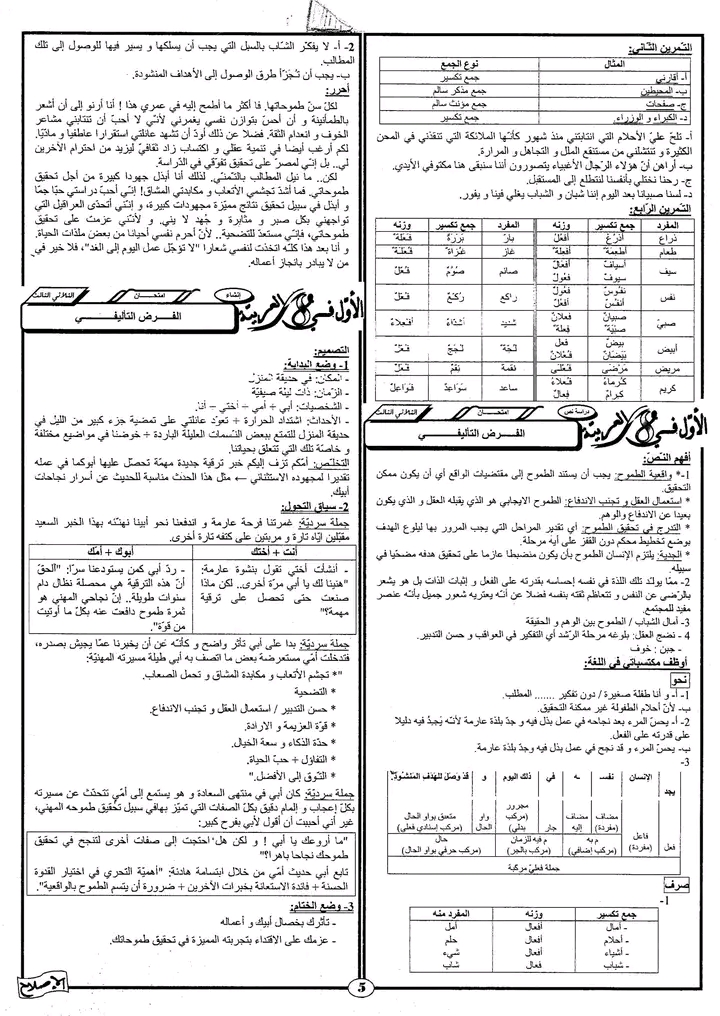 التمرين الثاني:
المثال | نوع الجمع
أ- أقارني | جمع تكسير
ب- المحيطين | جمع مذكر سالم
ج- صفحات | جمع مؤنث سالم
د- الكبراء و الوزراء. | جمع تكسير
أ- تلحّ عليّ الأحلام التي انتابتني منذ شهور كأنّها الملائكة التي تنقذني في المحن
الكثيرة و تنتشلني من مستنقع الملل و التجاهل و المرارة.
ب- أراهن أنّ هؤلاء الرّجال الأغبياء يتصورون أننا سنبقى هنا مكتوفي الأيدي.
ج- رحنا نختلي بأنفسنا لنتطلع إلى المستقبل.
د- لسنا صبيانا بعد اليوم إننا شبان و الشباب يغلي فينا و يفور.
التمرين الرابع:
المفرد | جمع تكسير | وزنه | المفرد | جمع تكسير | وزنه
ذراع | أذرع | أفعل | بارّ | بررة | فعلة
طعام | أطعمة | أفعلة | غاز | غزاة | فعلة
سيف | أسياف سيوف | أفعال فعول | صائم | صوّم | فعّل
نفس | نفوس أنفس | فعول أفعل | راكع | ركّع | فعّل
صبيّ | صبيان صبية | فعلان فعلة | شديد | أشدّاء | أفعلاء
أبيض | بيض بيضان | فعل فعلان | لجّة | لجج | فعل
مريض | مرضى | فعلى | نقمة | نقم | فعل
كريم | كرماء كرام | فعلاء فعال | ساعد | سواعد | فواعل
الأوّل في العربية
دراسة نص
امتحان
الثلاثي الثالث
الفرض التأليفي
أفهم النّصّ:
1-* واقعية الطموح: يجب أن يستند الطموح إلى مقتضيات الواقع أي أن يكون ممكن
التحقيق.
* استعمال العقل و تجنب الاندفاع: الطموح الايجابي هو الذي يقبله العقل و الذي يكون
بعيدا عن الاندفاع والوهم.
* التدرج في تحقيق الطموح: أي تقدير المراحل التي يجب المرور بها ليلوغ الهدف
بوضع تخطيط محكم دون القفز على أية مرحلة.
* الجدية: يلتزم الإنسان الطموح بأن يكون منضبطا عازما على تحقيق هدفه مضحّيا في
سبيله.
2- ممّا يولّد تلك اللذة في نفسه إحساسه بقدرته على الفعل و إثبات الذات بل هو يشعر
بالرّضى عن النفس و تتعاظم ثقته بنفسه فضلا عن أنّه يعتريه شعور جميل بأنه عنصر
مفيد للمجتمع.
3- أمال الشباب / الطموح بين الوهم و الحقيقة
4- نضج العقل: بلوغه مرحلة الرّشد أي التفكير في العواقب و حسن التدبير.
- جبن : خوف
أوظف مكتسباتي في اللغة:
نحو
1- أ- و أنا طفلة صغيرة / دون تفكير ....... المطلب.
ب- لأنّ أحلام الطفولة غير ممكنة التحقيق.
2- أ- يحسّ المرء بعد نجاحه في عمل بذل فيه و جدّ بلذة عارمة لأنه يُجدُ فيه دليلا
على قدرته على الفعل.
ب- يحسّ المرء و قد نجح في عمل بذل فيه وجدّ بلذة عارمة.
3-
يجد | الإنسان | نفسـ | ـه | في | ذلك اليوم | و | قد وصل للهدف المنشود
مضاف (مفردة) | مضاف إليه | جار | مجرور (مركب بدلي) | واو الحال | متعلق بواو الحال (مركب إسنادي فعلي)
فعل | فاعل (مفردة) | م به (مركب إضافي) | م فيه للزمان (مركب بالجر) | حال (مركب حرفي بواو الحال)
جملة فعليّة مركبة
صرف
1-
جمع تكسير | وزنه | المفرد منه
- أمال | أفعال | أمل
- أحلام | أفعال | حلم
- أشياء | أفعال | شيء
- شباب | فعال | شاب
2- أ- لا يفكّر الشّاب بالسبل التي يجب أن يسلكها و يسير فيها للوصول إلى تلك
المطالب.
ب- يجب أن تُجَزّأ طرق الوصول إلى الأهداف المنشودة.
أحرر:
لكلّ سنّ طموحاتها. فما أكثر ما أطمح إليه في عمري هذا ! أنا أرنو إلى أن أشعر
بالطمأنينة و أن أحسّ بتوازن نفسي يغمرني لأنّي لا أحبّ أن تنتابني مشاعر
الخوف و انعدام الثقة. فضلا عن ذلك أودّ أن تشهد عائلتي استقرارا عاطفيا و ماديّا.
لكم أرغب أيضا في تنمية عقلي و اكتساب زاد ثقافيّ ليزيد من احترام الآخرين
لي.. بل إنني لمصرّ على تحقيق تفوّقي في الدّراسة.
لكن.. ما نيل المطالب بالتمنّي. لذلك أنا أبذل جهودا كبيرة من أجل تحقيق
طموحاتي. فما أشدّ تجشمي الأتعاب و مكابدتي المشاق! إنني أحبّ دراستي حبّا جمّا
و أبذل في سبيل تحقيق نتائج مميّزة مجهودات كبيرة، و إنني أتحدّى العراقيل التي
تواجهني بكل صبر و مثابرة و جُهد لا يني. و لأنني عزمت على تحقيق
طموحاتي، فإنّي مستعدّ للتضحية.. لأنّ أحرم نفسي أحيانا من بعض ملذات الحياة.
و أنا بعد هذا كلّه اتخذت لنفسي شعارا "لا تؤجّل عمل اليوم إلى الغد"، فلا خير في
من لا يبادر بانجاز أعماله.
الأوّل في العربية
إنشاء
امتحان
الثلاثي الثالث
الفرض التأليفي
التصميم:
1- وضع البداية:
- المكان: في حديقة المنزل
- الزّمان: ذات ليلة صيفيّة
- الشخصيات: أبي + أمي + أختي – أنا.
- الأحداث: اشتداد الحرارة + تعوّد عائلتي على تمضية جزء كبير من الليل في
حديقة المنزل للتمتع ببعض النّسمات العليلة الباردة + خوضنا في مواضيع مختلفة
و خاصّة تلك التي تتعلق بحياتنا.
التخلّص: أمّكم تزف إليكم خبر ترقية جديدة مهمّة تحصل عليها أبوكما في عمله
تقديرا لمجهوده الاستثنائي ← مثل هذا الحدث مناسبة للحديث عن أسرار نجاحات
أبيك.
2- سياق التحول:
جملة سرديّة: غمرتنا فرحة عارمة و اندفعنا نحو أبينا نهنّئه بهذا الخبر السعيد
مقبّلين إيّاه تارة و مربتين على كتفه تارة أخرى.
أنت + أختك | أبوك + أمّك
- أنشأت أختي تقول بنشوة عارمة: "هنيئا لك يا أبي مرّة أخرى.. لكن ماذا صنعت حتى تحصل على ترقية مهمة؟" | - ردّ أبي كمن يستودعنا سرّا: "الحقّ أنّ هذه الترقية هي محصلة نضال دام سنوات طويلة.. إنّ نجاحي المهني هو ثمرة طموح دافعت عنه بكلّ ما أوتيت من قوّة".
جملة سرديّة: بدا على أبي تأثر واضح و كأنّه عن أن يخبرنا عمّا يجيش بصدره،
فتدخلت أمّي مستعرضة بعض ما اتصف به أبي طيلة مسيرته المهنيّة:
"* تجشم الأتعاب و مكابدة المشاق و تحمل الصعاب.
* التضحية
* حسن التدبير / استعمال العقل و تجنب الاندفاع.
* قوّة العزيمة و الارادة.
* حدّة الذكاء و سعة الخيال.
* التفاؤل + حبّ الحياة.
* التّوق إلى الأفضل."
جملة سرديّة: كان أبي في منتهى السعادة و هو يستمع إلى أمّي تتحدّث عن مسيرته
بكلّ إعجاب و إلمام دقيق بكلّ الصفات التي تميّز بهافي سبيل تحقيق طموحه المهني،
غير أني أحببت أن أقول لأبي بفرح كبير:
"ما أروعك يا أبي ! و لكن هل احتجت إلى صفات أخرى لتنجح في تحقيق
طموحك نجاحا باهرا؟"
تابع أبي حديث أمّي من خلال ابتسامة هادئة: "أهميّة التحري في اختيار القدوة
الحسنة + فائدة الاستعانة بخبرات الآخرين + ضرورة أن يتسم الطموح بالواقعية".
3- وضع الختام:
- تأثرك بخصال أبيك و أعماله
- عزمك على الاقتداء بتجربته المميزة في تحقيق طموحاتك.
5
الإصلاح